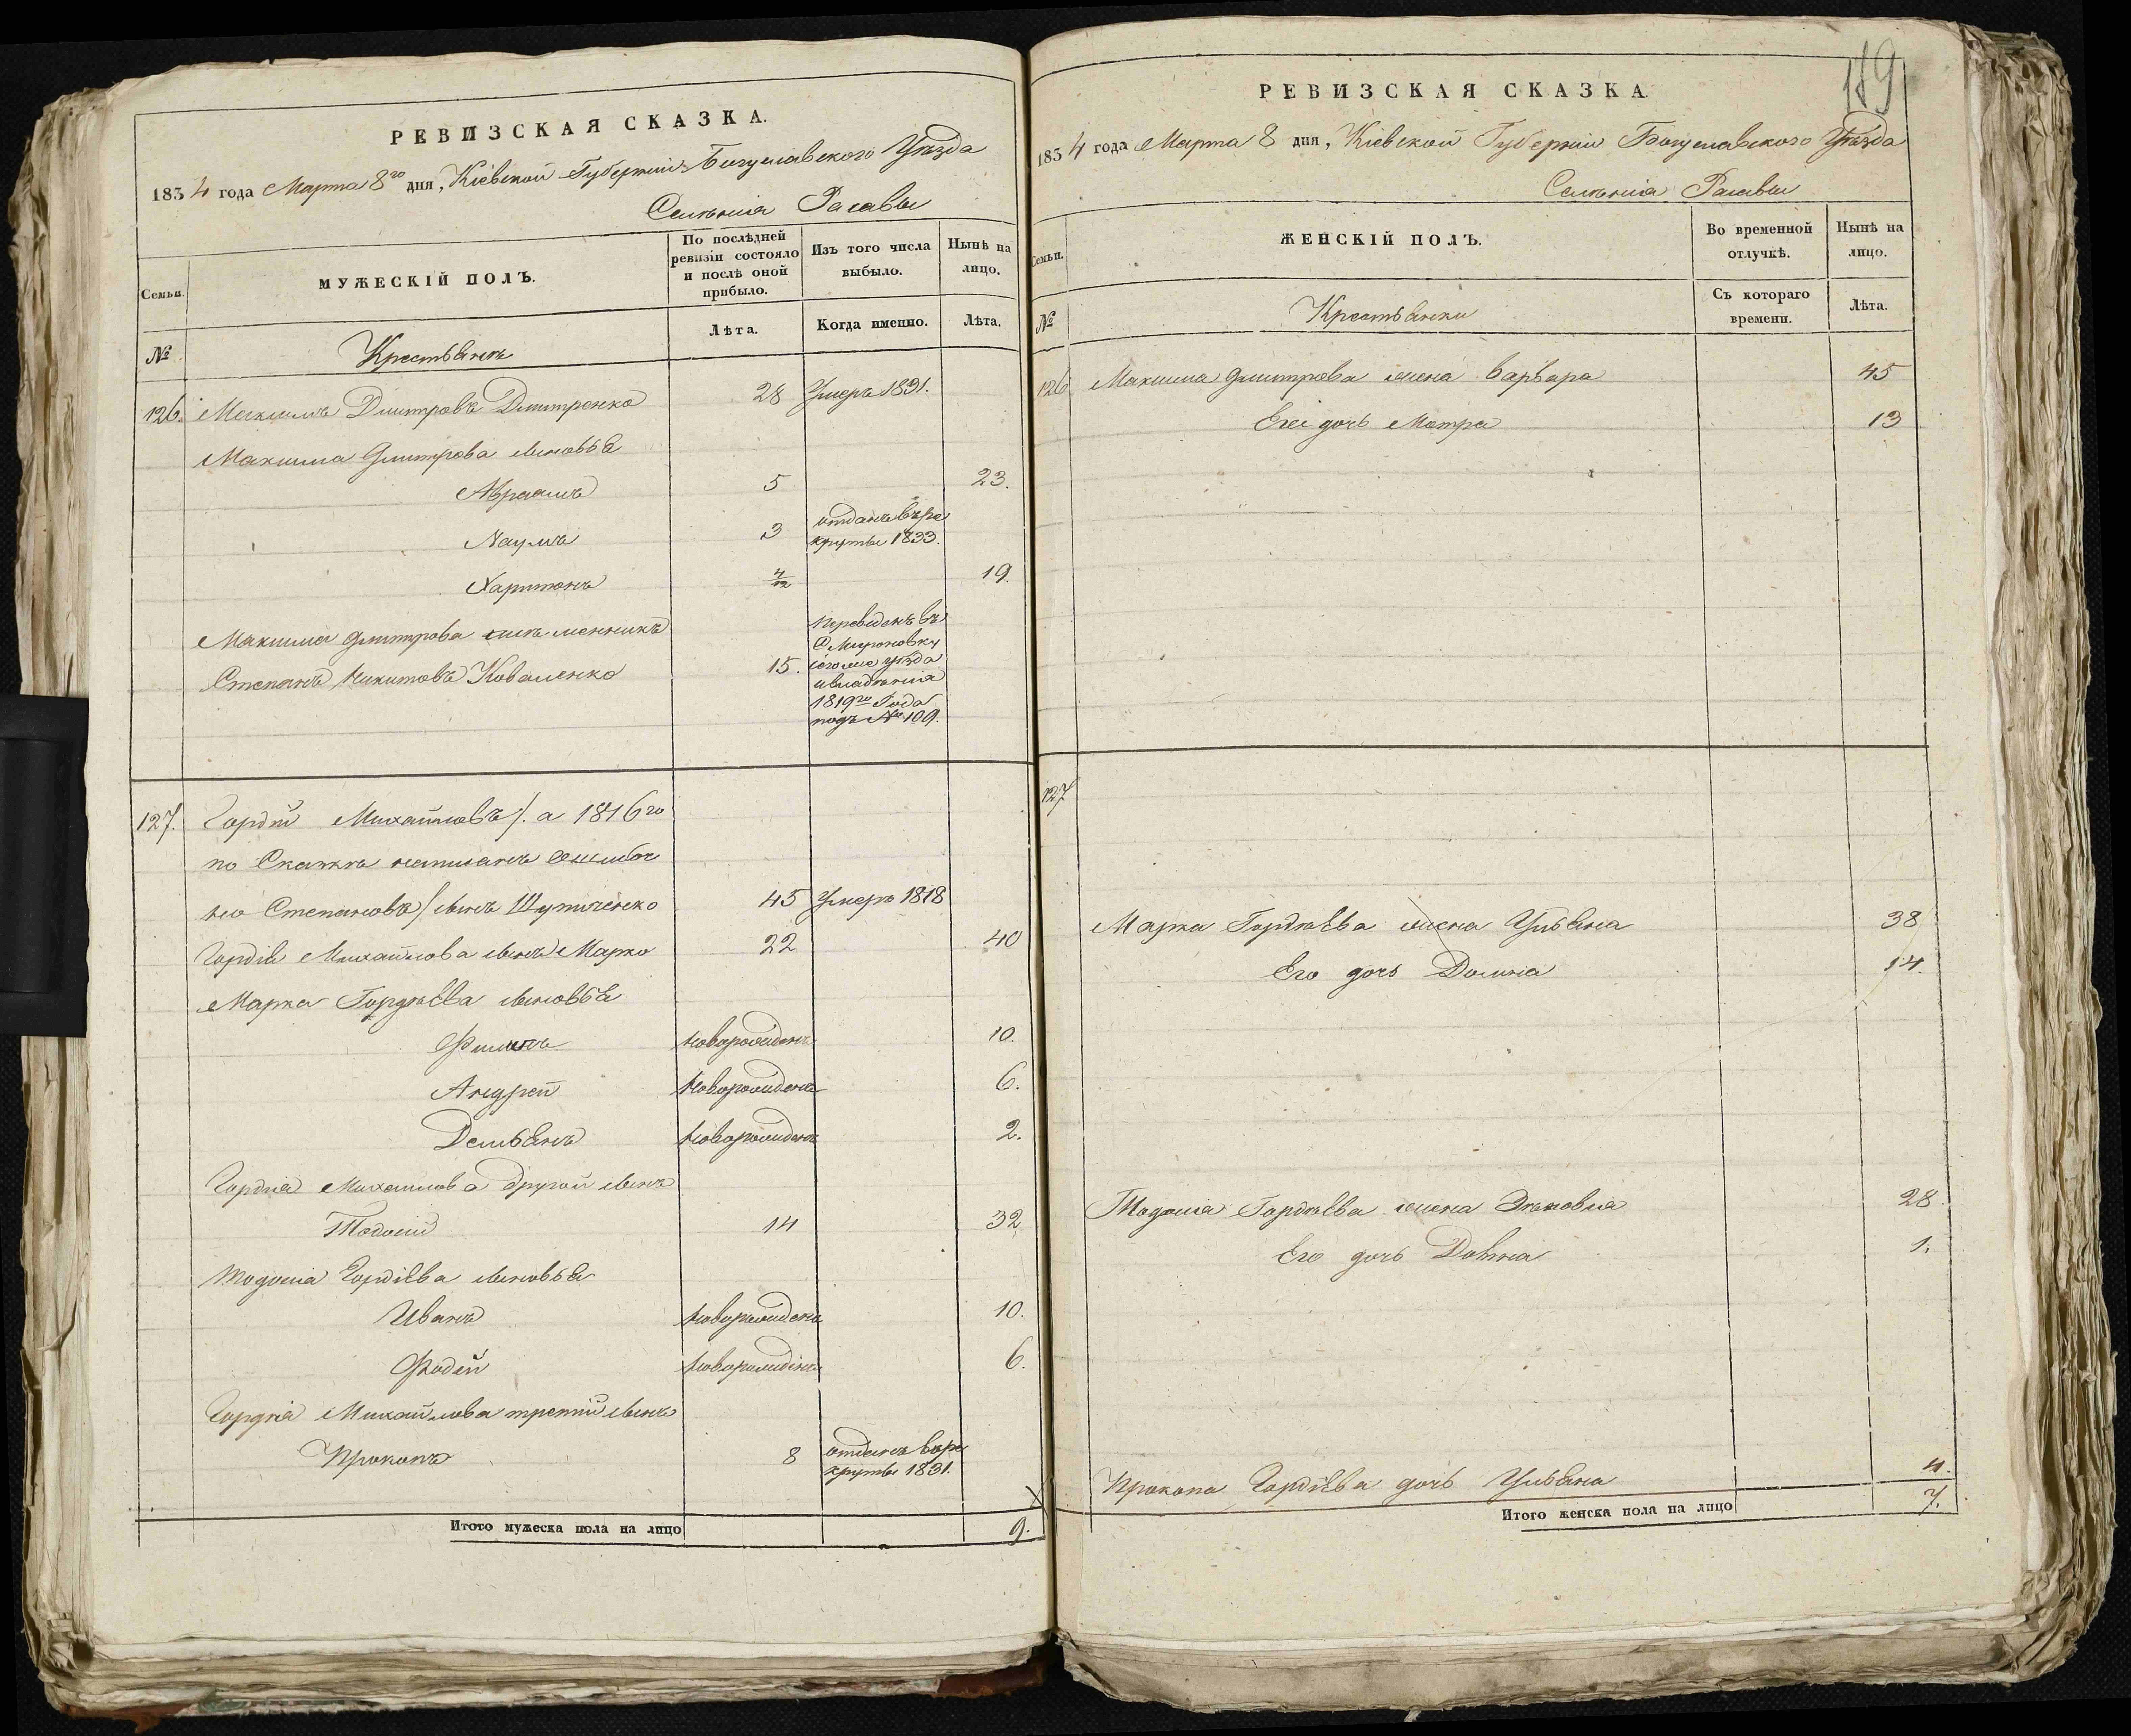 РЕВИЗСКАЯ СКАЗКА.
1834 года Марта 8го дня, Кіевской Губерніи Богуславского Уѣзда
Селѣнія Расавы
Семьи.
МУЖЕСКІЙ ПОЛЪ.
По послѣдней ревизіи состояло и послѣ оной прибыло.
Изъ того числа выбыло.
Нынѣ на лицо.
№
Крестьянѣ
Лѣта.
Когда именно.
Лѣта.
126. Максимъ Дмитровъ Дмитренко 28 Умеръ 1831.
Максима Дмитрова сыновья
Авраамъ 5 23.
Наумъ 3 отданъ въ ре
круты 1833.
Харитонъ 4/12 19.
Максима Дмитрова племенникъ
Степанъ Никитовъ Коваленко 15.
переведенъ въ
С Мироновку
сего же уѣзда
и владѣнія
1819го Года
подъ № 109.
127. Гордѣй Михайловъ /. а 1816го
по Сказкѣ написанъ Ошибоч
но Степановъ / сынъ Шутиченко 45 Умеръ 1818
Гордія Михайлова сынъ Марко 22 40
Марка Гордѣева сыновья
Филипъ новорожденъ 10.
Андрей новорожденъ 6.
Демьянъ новорожденъ 2.
Гордѣя Михайлова другой сынъ
Тодосій 14 32
Тодосія Гордіева сыновья
Иванъ новорожденъ 10.
Фадей новорожденъ 6.
Гордѣя Михайлова третій сынъ
Прокопъ 8 отданъ въ ре
круты 1831.
Итого мужеска пола на лицо 9.
119
РЕВИЗСКАЯ СКАЗКА
1834 года Марта 8 дня, Кіевской Губерніи Богуславского Уѣзда
Селѣнія Расавы
Семьи.
ЖЕНСКІЙ ПОЛЪ.
Во временной отлучкѣ.
Нынѣ на лицо.
№
Крестьянки
Съ котораго времени.
Лѣта.
126 Максима Дмитрова жена Варвара 45
Его дочь Мотря 13
127
Марка Гордѣева жена Ульяна 38
Его дочь Домна 14.
Тодосія Гордѣева жена 28
Его дочь 1.
Прокопа Гордіева дочь Ульяна 4.
Итого женска пола на лицо 7.